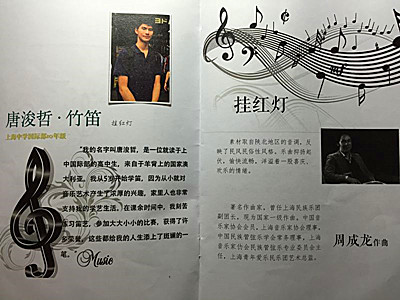 唐浚哲·竹笛 挂红灯
上海中学国际部10年级
"我的名字叫唐浚哲,是一位就读于上
中国际部的高中生,来自于羊背上的国家澳
大利亚。我从5岁开始学笛,因为从小就对
音乐艺术产生了浓厚的兴趣,家里人也非常
支持我的学艺生活。在课余时间中,我刻苦
练习笛艺,参加大大小小的比赛,获得了许
多荣誉。这些都给我的人生添上了斑斓的一
笔。
Music
挂红灯
素材取自陕北地区的音调,反
映了民风民俗性风格。乐曲抑扬起
伏,愉快流畅,洋溢着一股喜庆、
欢乐的情绪。
周成龙 作曲
著名作曲家,曾任上海民族乐团
副团长,现为国家一级作曲,中国音
乐家协会会员,上海音乐家协会理事,
中国民族管弦乐学会常务理事,上海
音乐家协会民族管弦乐专业委员会主
任,上海青年爱乐民乐团艺术总监。